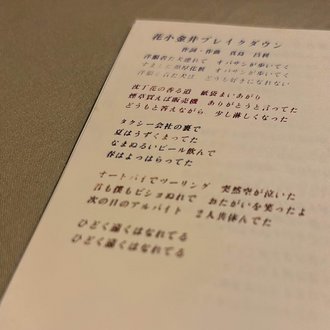 花小金井ブレイクダウン
作詞・作曲 真島 昌利
洋服着た犬連れて オバサンが歩いてく
すました顔厚化粧 オバサンが歩いてく
洋服着た犬は どうも好きになれない
沈丁花の香る道 紙袋まいあがる
煙草買えば販売機 ありがとうと言ってた
どうもと答えながら 少し淋しくなった
タクシー会社の裏で
夏はうずくまってた
なまぬるいビール飲んで
春はよっぱらってた
オートバイでツーリング 突然空が泣いた
君も僕もビショぬれで おたがいを笑ったよ
次の日のアルバイト 2人共休んでた
ひどく遠くはなれてる
ひどく遠くはなれてる